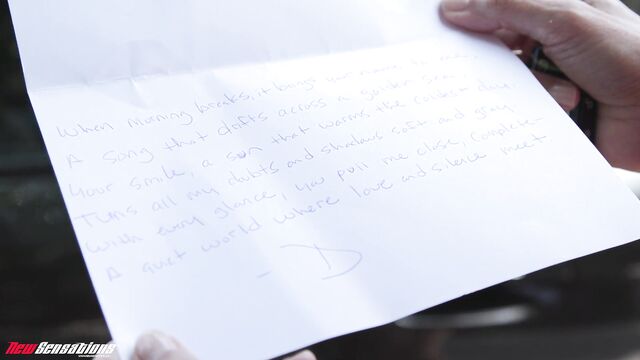 When Morning breaks, it brings your name to me,
A song that drifts across a golden sea.
Your smile, a sun that warms the coldest day,
Turns all my doubts and shadows soft and gray
With every glance, you pull me close, complete-
A quiet world where love and silence meet.
- D
New Sensations